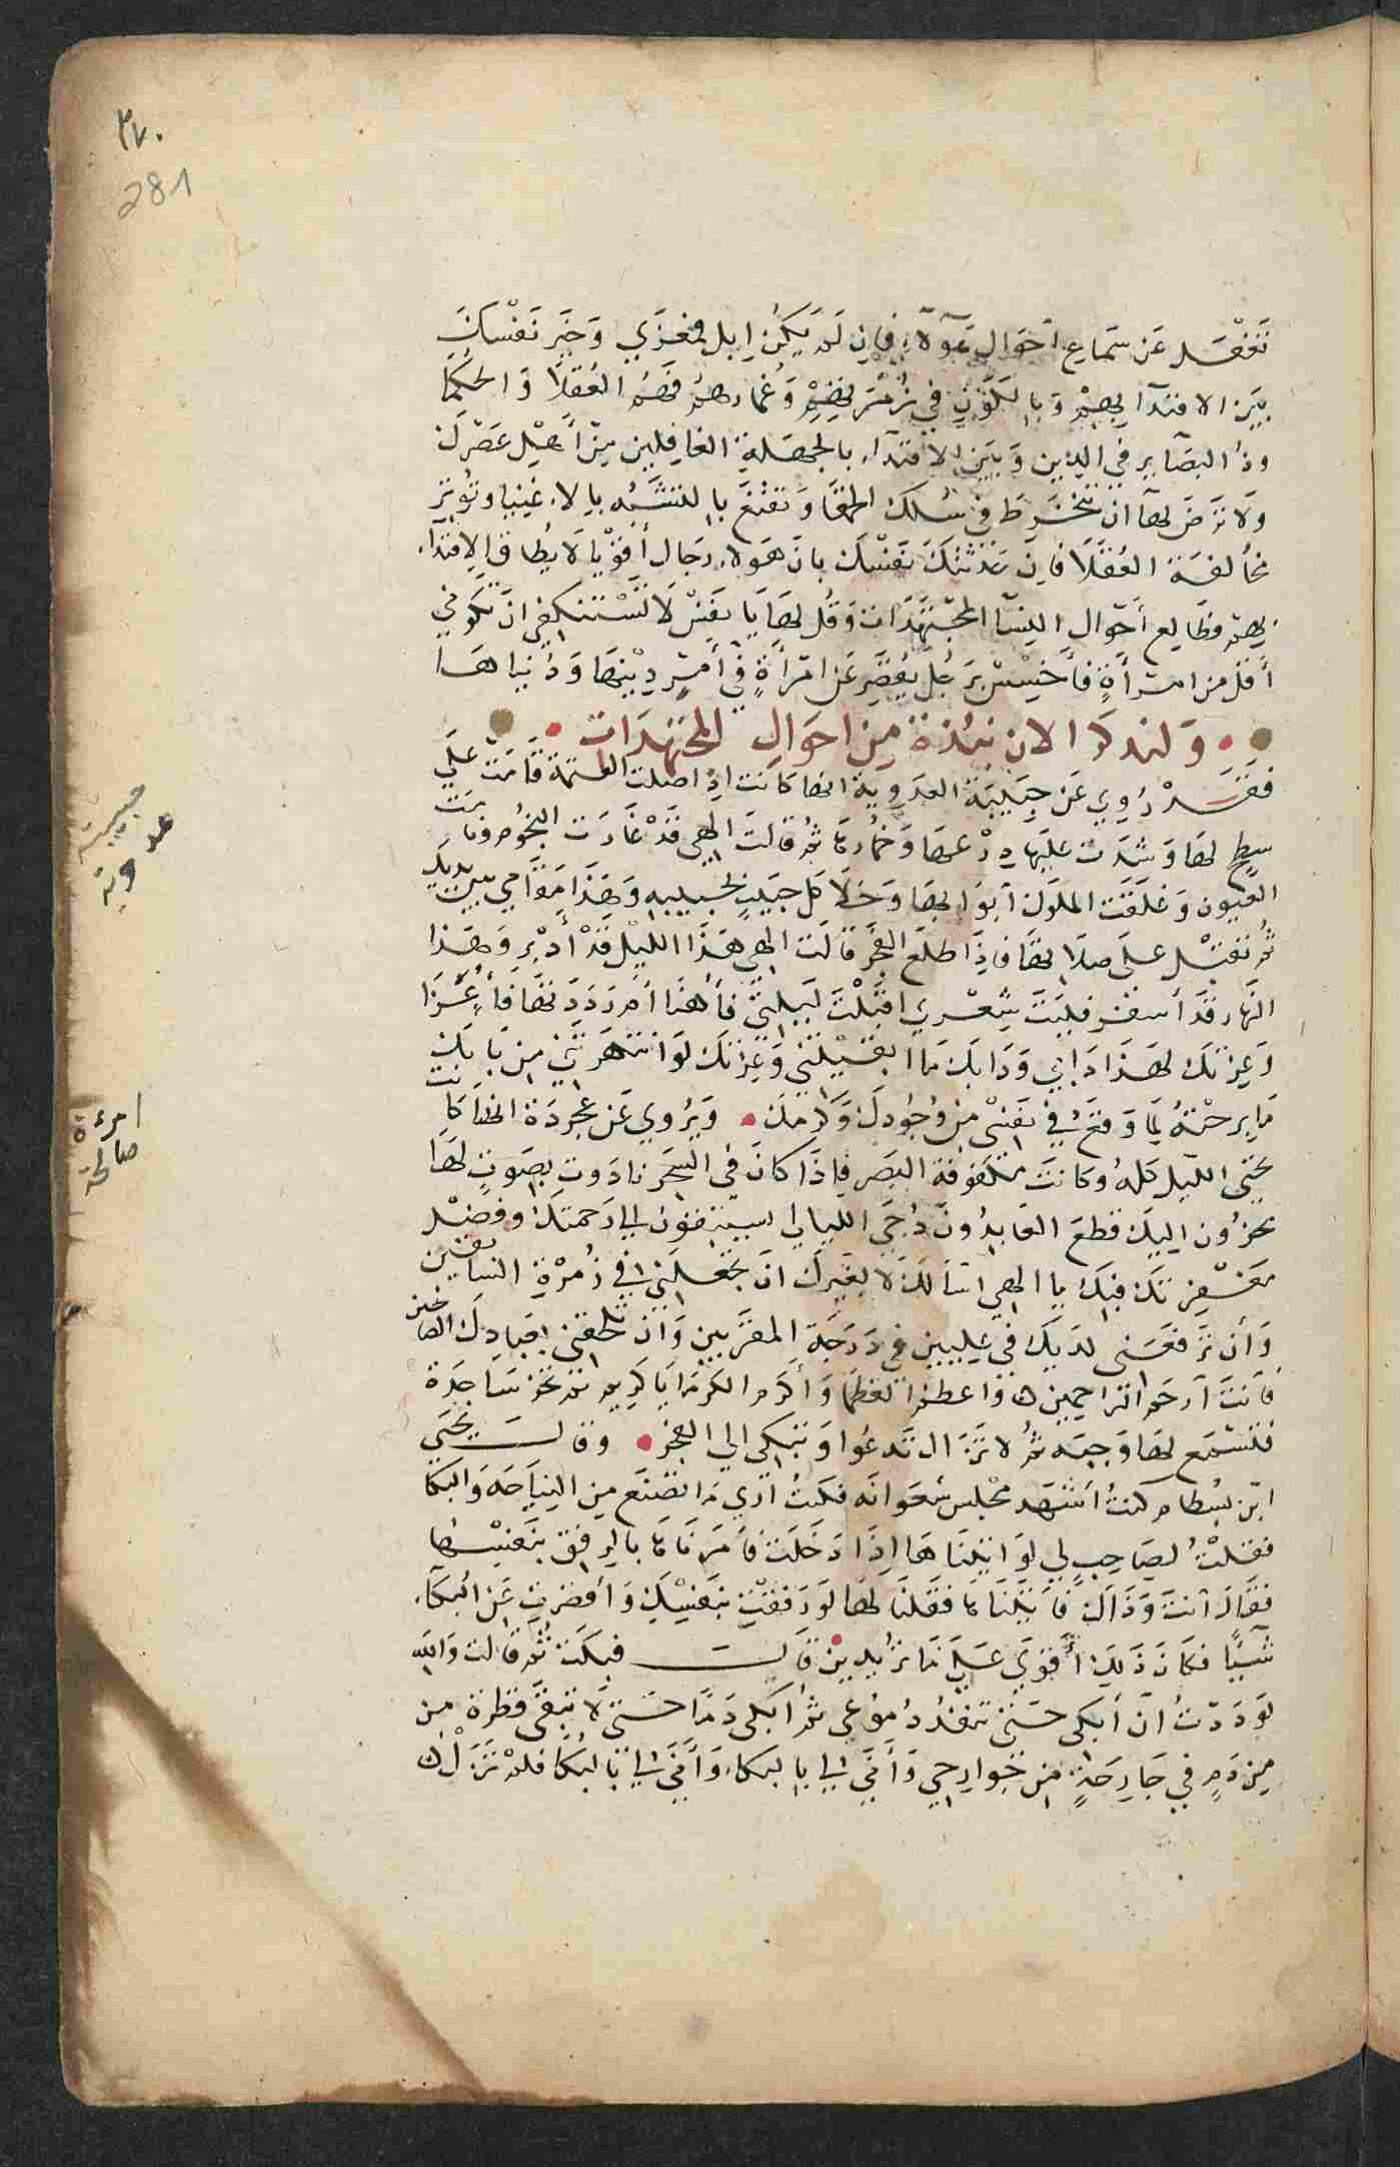 ٢٧٠
281
تغفل عن سماع احوال هولاء فان لم يكن ابل فمعزي وخير نفسك
بين الاقتدا بهم وبالكون في زمرتهم وغمارهم فهم العقلا والحكما
وذو البصاير في الدين وبين الاقتدا بالجهلة الغافلين من أهل عصرك
ولا ترض لها ان تنخرط في سلك الحمقا وتقنع بالتشبه بالاغبيا وتوثر
مخالفة العقلا فان حدثتك نفسك بان هولا رجال أقويا لا يطاق الاقتدا
بهم فطالع أحوال النسا المجتهدات وقل لها يا نفس لا تستنكفي ان تكوني
أقل من امرأة فأخسس برجل يقصر عن امرأة في أمر دينها ودنياها
ولنذكر الان نبذة من احوال المجتهدات
فقد روي عن حبيبة العدوية انها كانت اذا صلت العتمة قامت علي
سطح لها وشدت عليها درعها وخمارها ثم قالت الهي قد غارت النجوم ونامت
العيون وغلقت الملوك أبوابها وخلا كل حبيب بحبيبه وهذا مقامي بين يديك
ثم تقبل على صلاتها فاذا طلع الفجر قالت الهي هذا الليل قد أدبر وهذا
النهار قد أسفر فليت شعري اقبلت ليلتي فأهنا أم رددتها فأعزا
وعزتك لهذا دابي ودابك ما ابقيتني وعزتك لو انتهرتني من بابك
ما برحته لما وقع في نفسي من وجودك وكرمك ويروي عن عجردة انها كانت
تحيي الليل كله وكانت مكفوفة البصر فاذا كان في السحر نادوت بصوت لها
محزون اليك قطع العابدون دجي الليالي يستبقون الي رحمتك وفضل
مغفرتك فبك يا الهي اسالك لا بغيرك ان تجعلني في زمرة السابقين
وأن ترفعني لديك في عليين في درجة المقربين وأن تلحقني بعبادك الصالحين
فأنت أرحم الراحمين واعظم العظما وأكرم الكرما يا كريم ثم تخر ساجدة
فتسمع لها وجبة ثم لا تزال تدعوا وتبكي الي الفجر وقال يحيي
ابن بسطام كنت أشهد مجلس شعوانه فكنت اري ما تصنع من النياحه والبكا
فقلت لصاحب لي لو اتيناها اذا دخلت فأمرناها بالرفق بنفسها
فقال أنت وذاك فأتيناها فقلنا لها لو رفقت بنفسك وأقصرت عن البكآء
شيئا فكان ذلك أقوي علي ما تريدين قالـــت فبكت ثم قالت والله
لوددت أن أبكي حتي تنفد دموعي ثم أبكي دما حتي لا تبقى قطرة من
من دم في جارحة من جوارحي وأني لي بالبكاء وأني لي بالبكا فلم تزل
حبيبة
عدوية
امرءة
صالحة